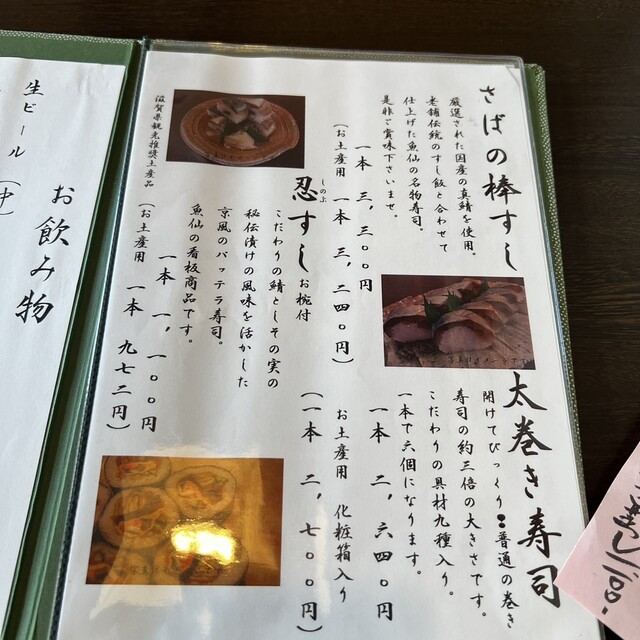 さばの棒すし
厳選された国産の真鯖を使用。
老舗伝統のすし飯と合わせて
仕上げた魚仙の名物寿司。
是非ご賞味下さいませ。
一本 三、三〇〇円
(お土産用 一本 三、二四〇円)
忍すし お椀付
しのぶ
こだわりの鯖としその実の
秘伝漬けの風味を活かした
京風のバッテラ寿司。
魚仙の看板商品です。
一本 一、一〇〇円
(お土産用 一本 九七二円)
滋賀県観光推奨土産品
太巻き寿司
開けてびっくり!!普通の巻き
寿司の約三倍の大きさです。
こだわりの具材九種入り。
一本で六個になります。
一本 二、六四〇円
お土産用 化粧箱入り
(一本 二、七〇〇円)
お飲み物
生ビール (中)